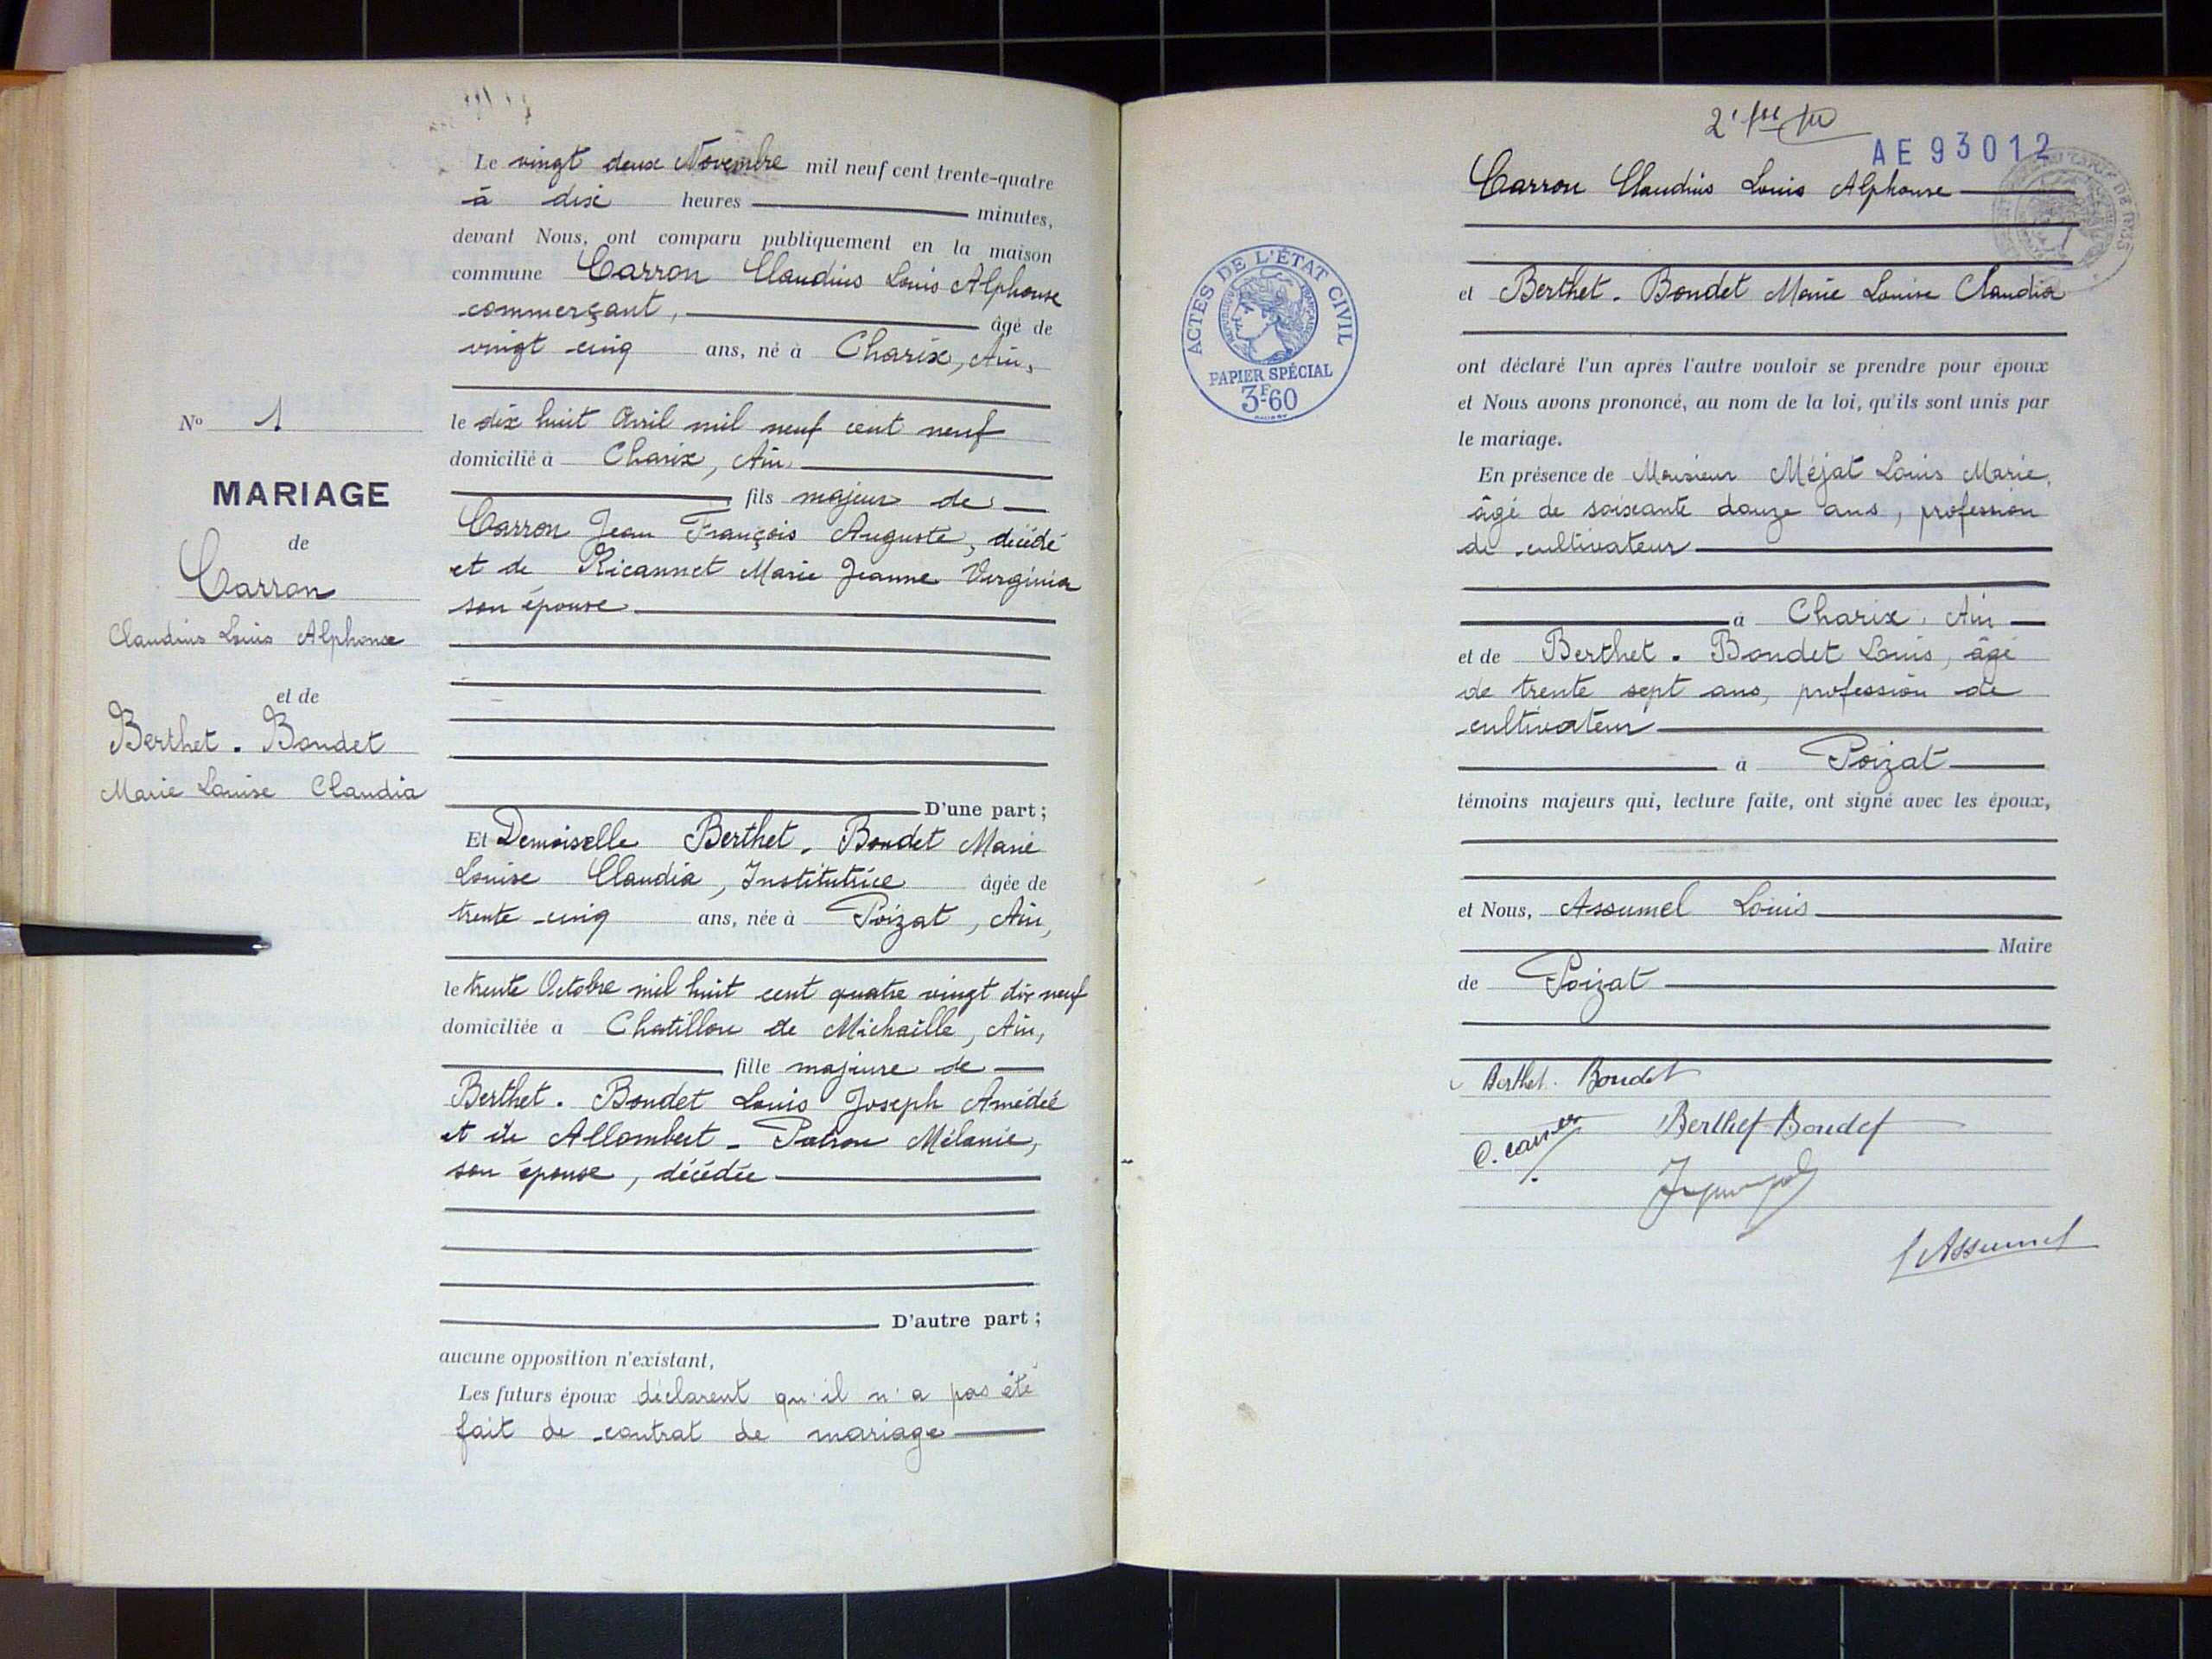 Le vingt deux Novembre mil neuf cent trente-quatre
à dix heures minutes,
devant Nous, ont comparu publiquement en la maison
commune Carron Claudius Louis Alphonse
commerçant, âgé de
vingt cinq ans, né à Charix, Ain,
le dix huit Avril mil neuf cent neuf
domicilié à Charix, Ain
fils majeur de
Carron Jean François Auguste, décédé
et de Ricannet Marie Jeanne Virginia
son épouse
D'une part ;
Et Demoiselle Berthet. Bondet Marie
Louise Claudia, Institutrice âgée de
trente cinq ans, née à Poizat, Ain,
le trente Octobre mil huit cent quatre vingt dix neuf
domiciliée à Chatillon de Michaille, Ain,
fille majeure de
Berthet. Bondet Louis Joseph Amédée
et de Allombert - Patron Mélanie,
son épouse, décédée
D'autre part ;
aucune opposition n'existant,
Les futurs époux déclarent qu'il n'a pas été
fait de contrat de mariage
No 1
MARIAGE
de
Carron
Claudius Louis Alphonse
et de
Berthet. Bondet
Marie Louise Claudia
AE93012
Carron Claudius Louis Alphonse
et Berthet. Bondet Marie Louise Claudia
ACTES DE L'ÉTAT CIVIL
RÉPUBLIQUE FRANÇAISE
PAPIER SPÉCIAL
3F60
ont déclaré l'un après l'autre vouloir se prendre pour époux
et Nous avons prononcé, au nom de la loi, qu'ils sont unis par
le mariage.
En présence de Monsieur Méjat Louis Marie,
âgé de soixante douze ans, profession
de cultivateur
à Charix, Ain
et de Berthet. Bondet Louis, âgé
de trente sept ans, profession de
cultivateur
à Poizat
témoins majeurs qui, lecture faite, ont signé avec les époux,
et Nous, Assumel Louis
Maire
de Poizat
Berthet. Bondet
C. Carron Berthet-Bondet
L Assumel